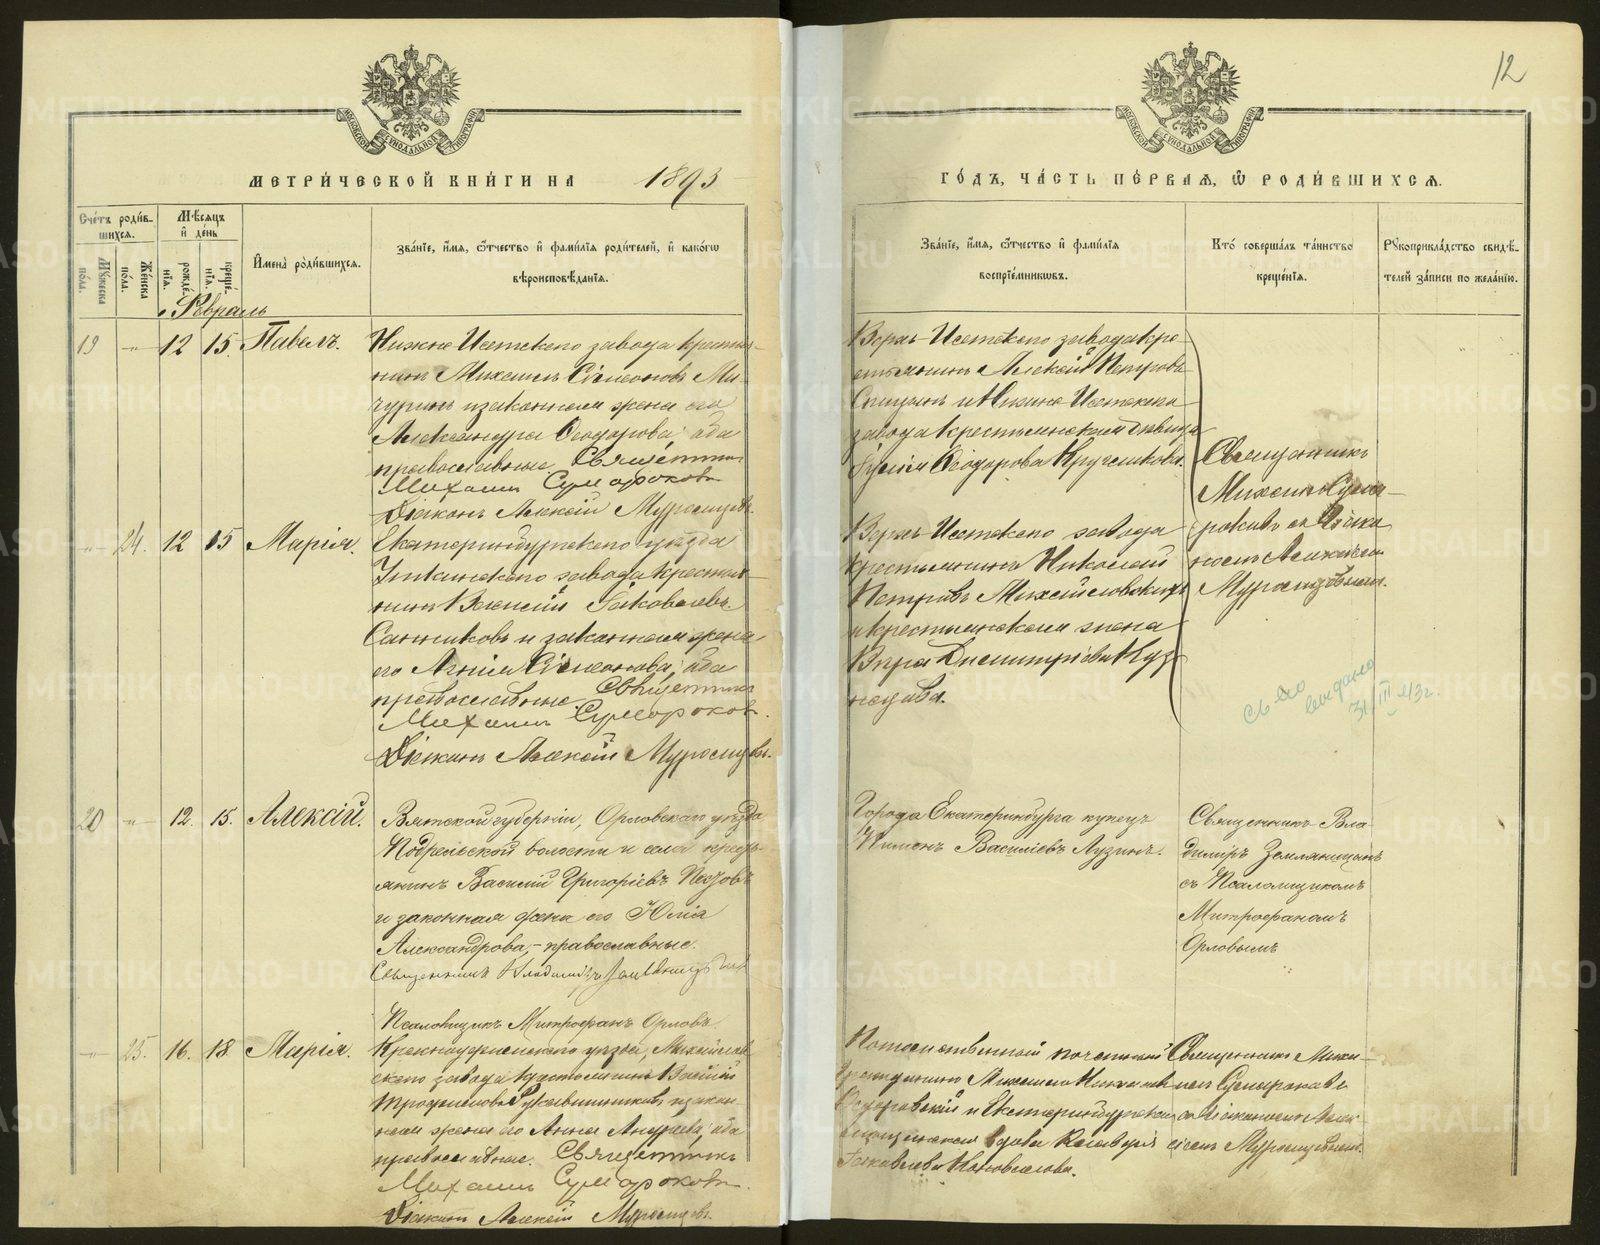 12
МЕТРИ́ЧЕСКОЙ КНИ́ГИ НА 1893
ГО́ДЪ, ЧА́СТЬ ПЕ́РВАЯ, Ѿ РОДИ́ВШИХСЯ.
Сче́тъ роди́в-
шихся.
Мꙋжеска по́ла.
Же́нска по́ла.
Мѣ́сяцъ и҆ де́нь
рожде́нїя.
креще́нїя.
И҆мена̀ роди́вшихся.
Зва́нїе, и҆́мя, ѻ҆́тчество и҆ фами́лїя роди́телей, и҆ како́гѡ
вѣроисповѣ́данїя.
Зва́нїе, и҆́мя, ѻ҆́тчество и҆ фами́лїя
воспрїе́мникѡвъ.
Кто̀ соверша́лъ та́инство
креще́нїя.
Рꙋкоприкла́дство свидѣ́-
телей за́писи по жела́нїю.
Февраль
19 " 12 15 Павелъ.
Нижне Исетскаго завода крестья-
нинъ Михаилъ Симеоновъ Ми-
чуринъ и законная жена его
Александра Ѳеодорова, оба
православные. Священникъ
Михаилъ Сумароковъ
Діаконъ Алексій Муромцевъ.
Верхъ-Исетскаго завода кре-
стьянинъ Алексѣй Петровъ
Спицынъ и Нижне Исетскаго
завода крестьянская дѣвица
Ѳеодорова Кругликова.
Священникъ
Михаилъ Сума-
роковъ съ Діако-
номъ Алексѣемъ
Муромцевымъ.
" 24. 12 15 Марія.
Екатеринбургскаго уѣзда
Уткинскаго завода крестья-
нинъ Василій Яковлевъ
Санниковъ и законная жена
его Агнія Симеонова, оба
православные. Священникъ
Михаилъ Сумароковъ.
Діаконъ Алексій Муромцевъ.
Верхъ-Исетскаго завода
крестьянинъ Николай
Петровъ
и крестьянская жена
Вѣра Димитріева Куз-
нецова.
св-во
выдано
31/III 913г.
20 " 12. 15. Алексій.
Вятской губерніи, Орловскаго уѣзда
Подрельской волости и села кресть-
янинъ Василій Григоріевъ
и законная жена его Юлія
Александрова, - православные.
Священникъ Владиміръ Земляницынъ
Псаломщикъ Митрофанъ Орловъ.
Города Екатеринбурга купецъ
Пименъ Василіевъ Лузинъ.
Священникъ Вла-
диміръ Земляницынъ
съ Псаломщикомъ
Митрофаномъ
Орловымъ
" 25. 16. 18. Марія.
Красноуфимскаго уѣзда, Михайлов-
скаго завода крестьянинъ Василій
Трофимовъ и закон-
ная жена его Анна Андреева, оба
православные. Священникъ
Михаилъ Сумароковъ.
Діаконъ Алексій Муромцевъ.
Потомственный почетный
гражданинъ Михаилъ
и Екатеринбургская
вдова
Яковлева Коновалова.
Священникъ Миха-
илъ Сумароковъ
съ Діакономъ Алек-
сіемъ Муромцевымъ.